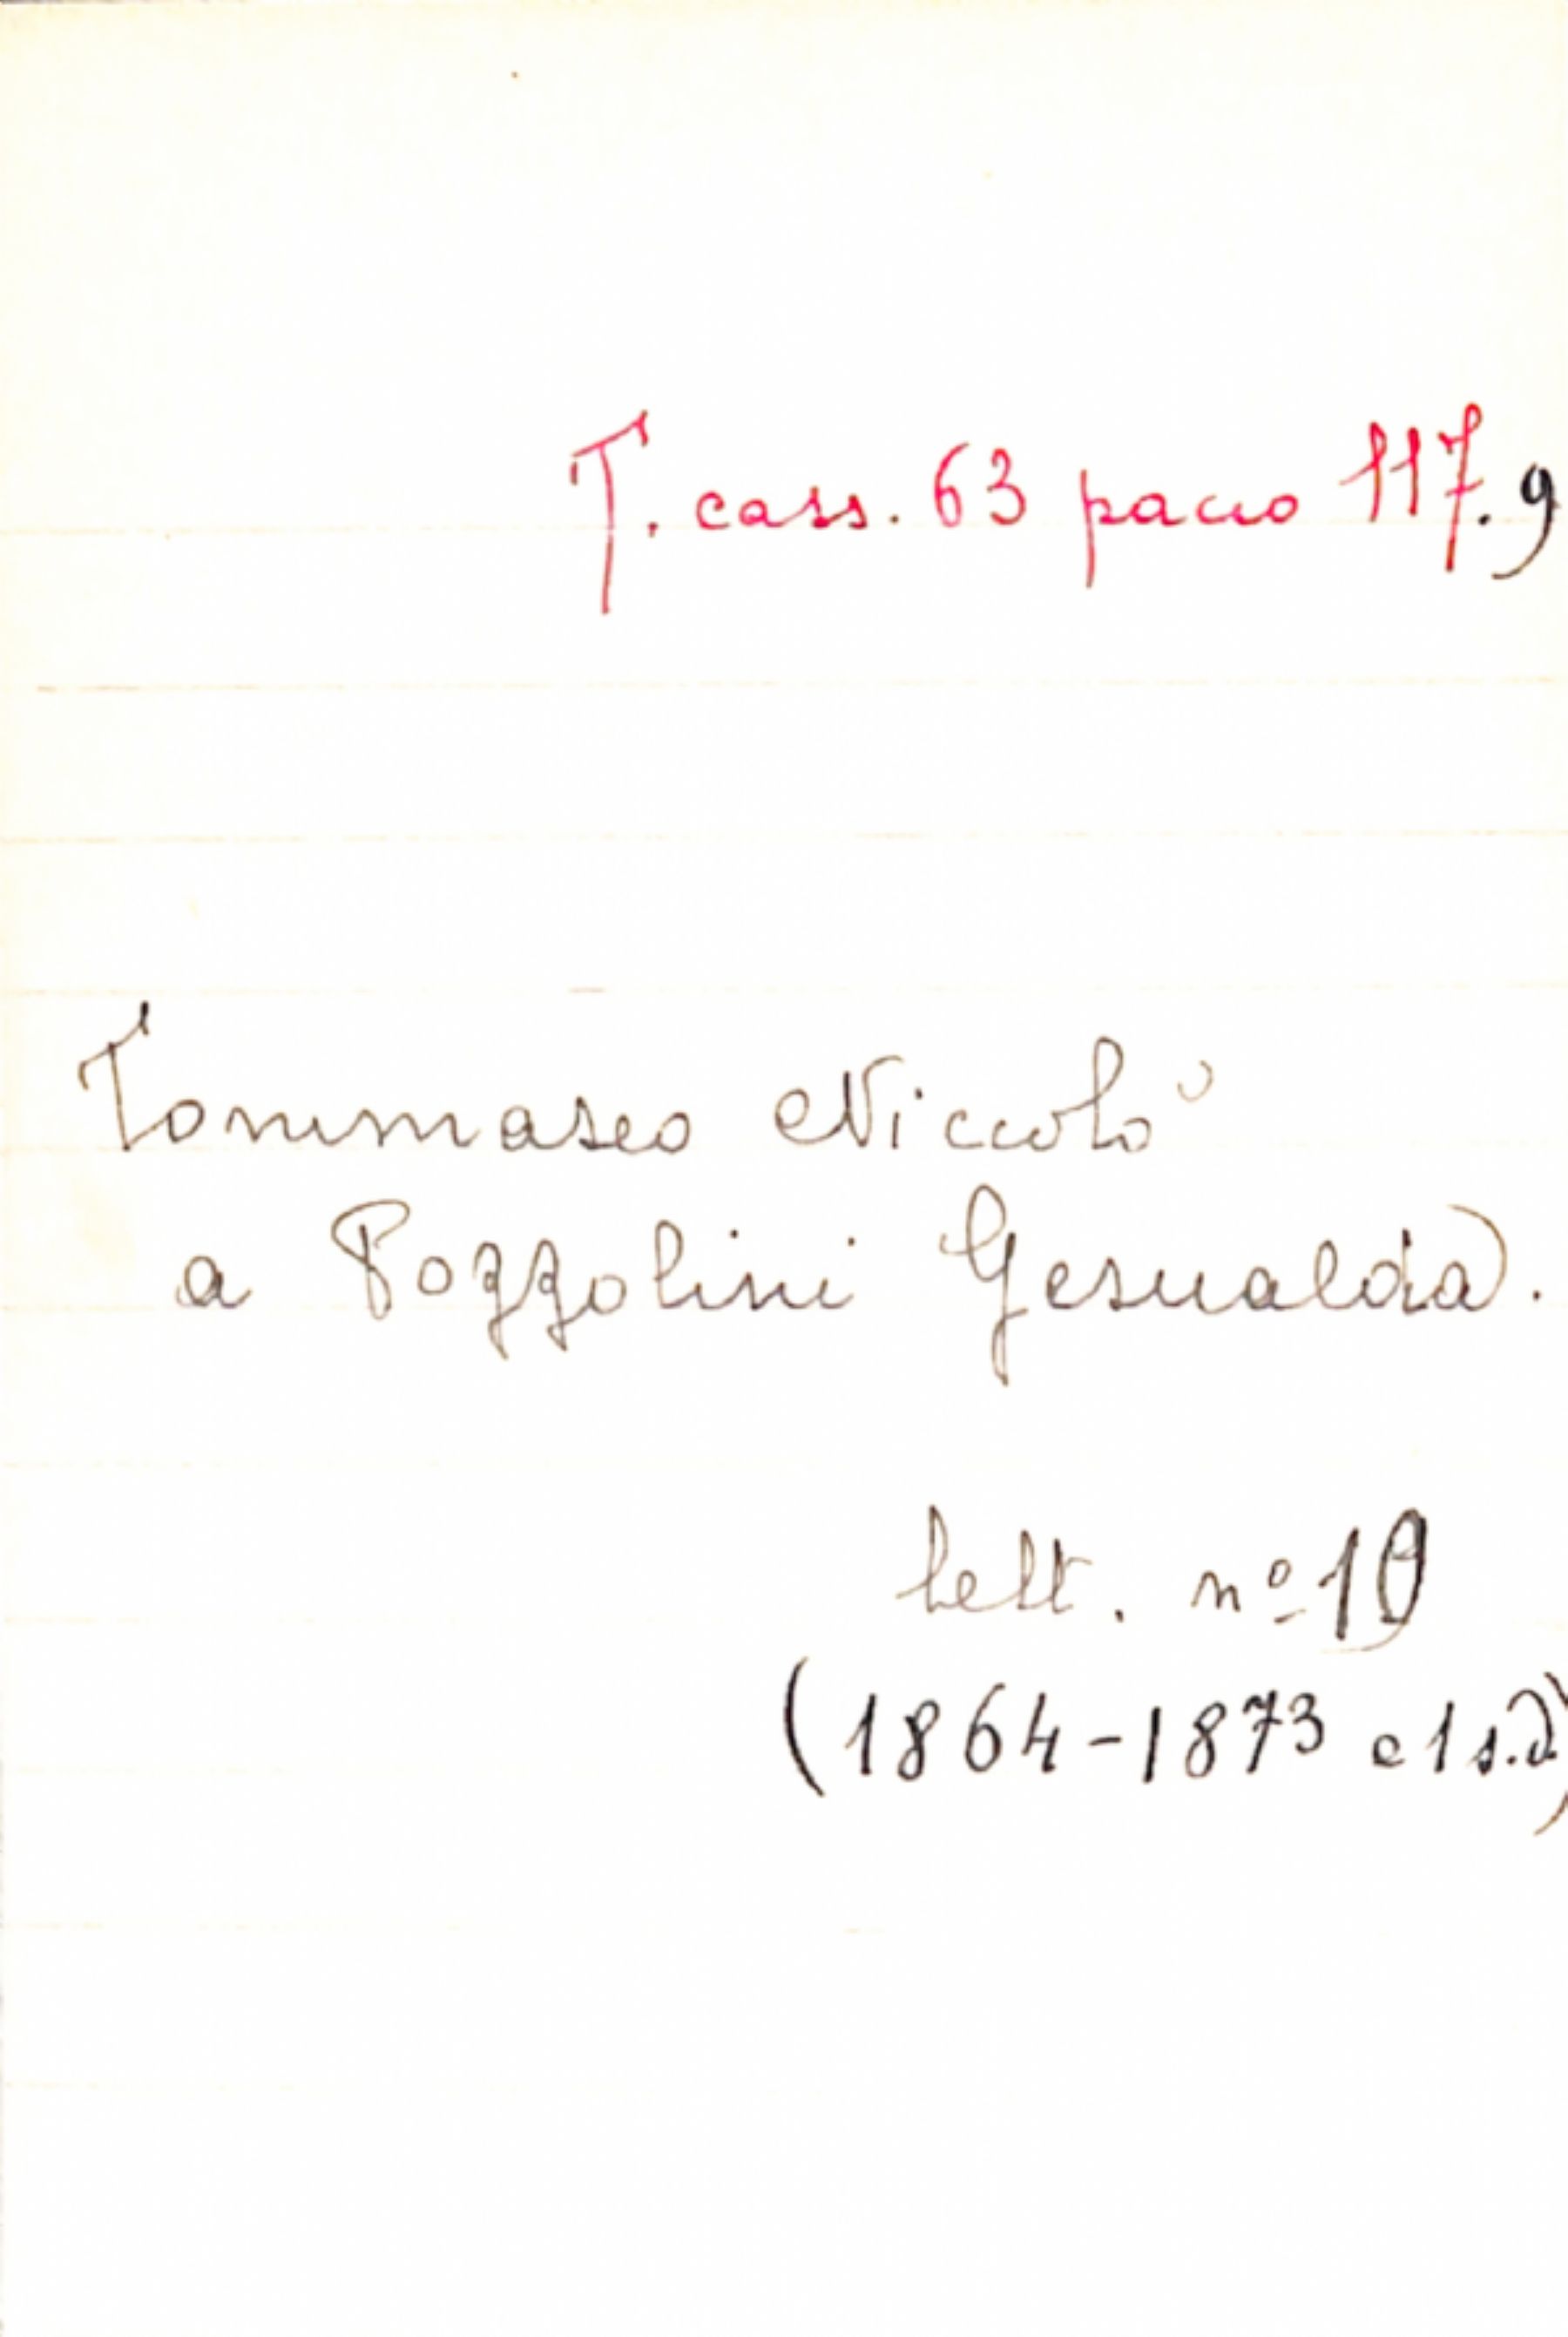 T. cass. 63 pacco 117.9
Tommaseo Niccolò
a Pozzolini Gesualda.
lett. nº 10
(1864-1873 e 1 s.d)